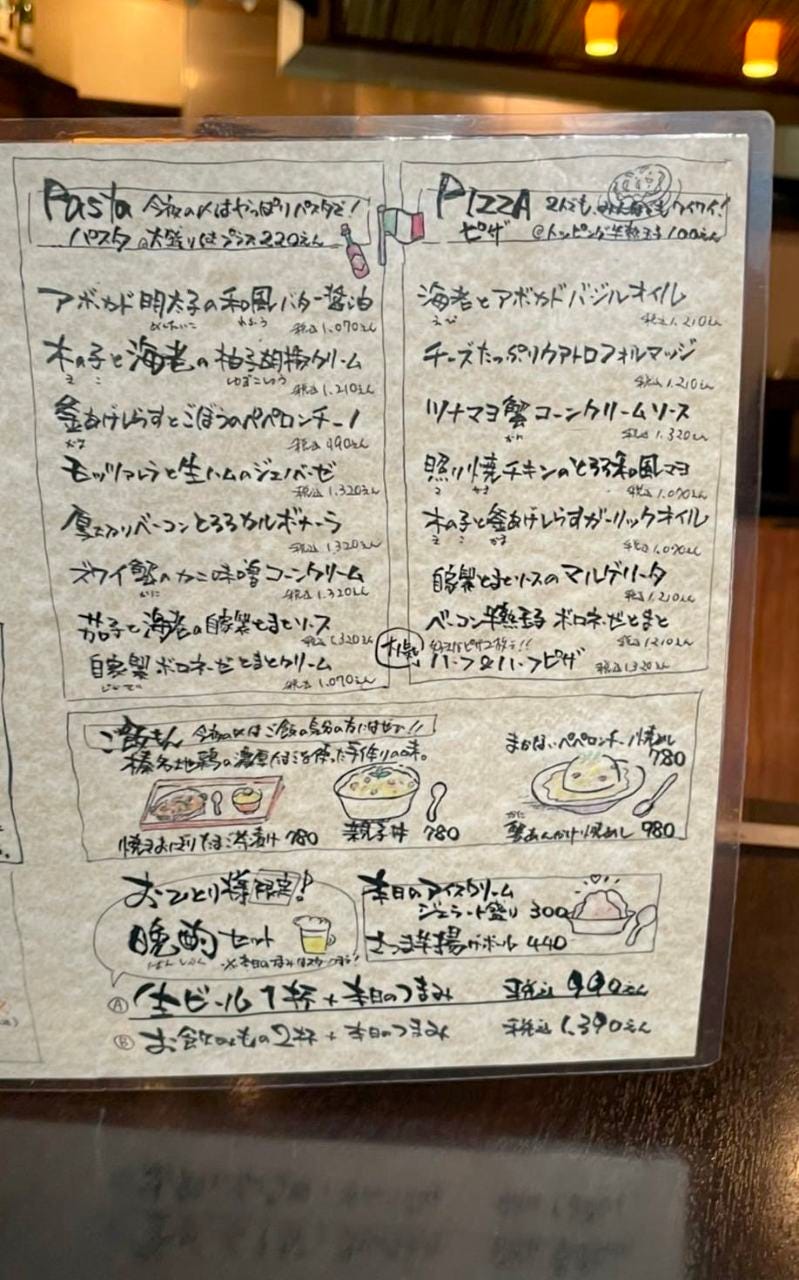 Pasta 今夜の〆はやっぱりパスタで!
パスタ 大盛りはプラス220えん
アボカド明太子の和風バター醤油
めんたいこ わふう
税込1,070えん
木の子と海老の柚子胡椒クリーム
きこ ゆずこしょう
税込1,210えん
釜あげしらすとごぼうのペペロンチーノ
かま
税込990えん
モッツァレラと生ハムのジェノベーゼ
税込1,320えん
厚切りベーコンとろろカルボナーラ
税込1,320えん
ズワイ蟹のカニ味噌コーンクリーム
かに
税込1,320えん
茄子と海老の自家製とまとソース
税込1,320えん
自家製ボロネーゼとまとクリーム
税込1,070えん
PIZZA 2人でも ワイワイ!
ピザ @トッピング半熟玉子100えん
海老とアボカドバジルオイル
えび
税込1,210えん
チーズたっぷりクアトロフォルマッジ
税込1,210えん
ツナマヨ蟹コーンクリームソース
かに
税込1,320えん
照り焼チキンのとろろ和風マヨ
て やき
税込1,070えん
木の子と釜あげしらすガーリックオイル
き こ かま
税込1,070えん
自家製とまとソースのマルゲリータ
税込1,210えん
ベーコン半熟玉子ボロネーゼとまと
税込1,210えん
好きなピザ2枚で!!
ハーフ&ハーフピザ
税込1,320えん
ご飯もん 今夜の〆はご飯の気分の方にはぜひ!!
榛名地鶏の濃厚たまごを使った手作りの味。
焼きおにぎりたまご茶漬け 780
親子丼 780
まかないペペロンチーノ焼めし
780
かに
蟹あんかけ焼めし 980
おひとり様限定!
晩酌セット
ばんしゃく
本日のアイスクリーム
ジェラート盛り 300
さつま芋揚げボール 440
Ⓐ 生ビール1杯+本日のつまみ 税込990えん
Ⓑ お飲みもの2杯+本日のつまみ 税込1,390えん